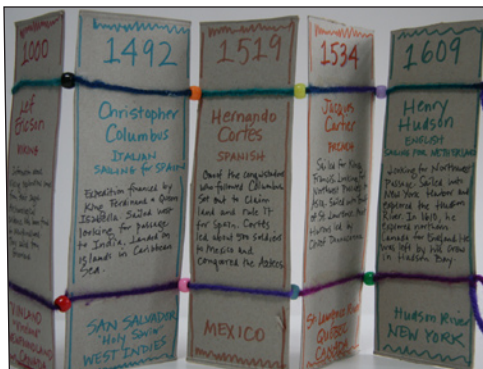 1000
Leif
Ericson
VIKING
VINLAND
"Vineland"
NEWFOUNDLAND
CANADA
1492
Christopher
Columbus
ITALIAN
SAILING FOR SPAIN
Expedition financed by
King Ferdinand & Queen
Isabella. Sailed west
looking for passage
to India. Landed on
islands in Caribbean
Sea.
SAN SALVADOR
"Holy Savior"
WEST INDIES
1519
Hernando
Cortés
SPANISH
One of the conquistadors
who followed Columbus.
Set out to claim
land and rule it for
Spain. Cortés
led about 500 soldiers
to Mexico and
conquered the Aztecs.
MEXICO
1534
Jacques
Cartier
FRENCH
Sailed for King
Francis. Looking for
Northwest Passage to
Asia. Sailed into Gulf
of St. Lawrence. Met
Hurons led by
Chief Donnaconna.
St Lawrence River
QUEBEC
CANADA
1609
Henry
Hudson
ENGLISH
SAILING FOR NETHERLANDS
Looking for Northwest
Passage. Sailed into
New York Harbor and
explored the Hudson
River. In 1610, he
explored northern
Canada for England. He
was left by his crew
in Hudson Bay.
Hudson River
NEW YORK